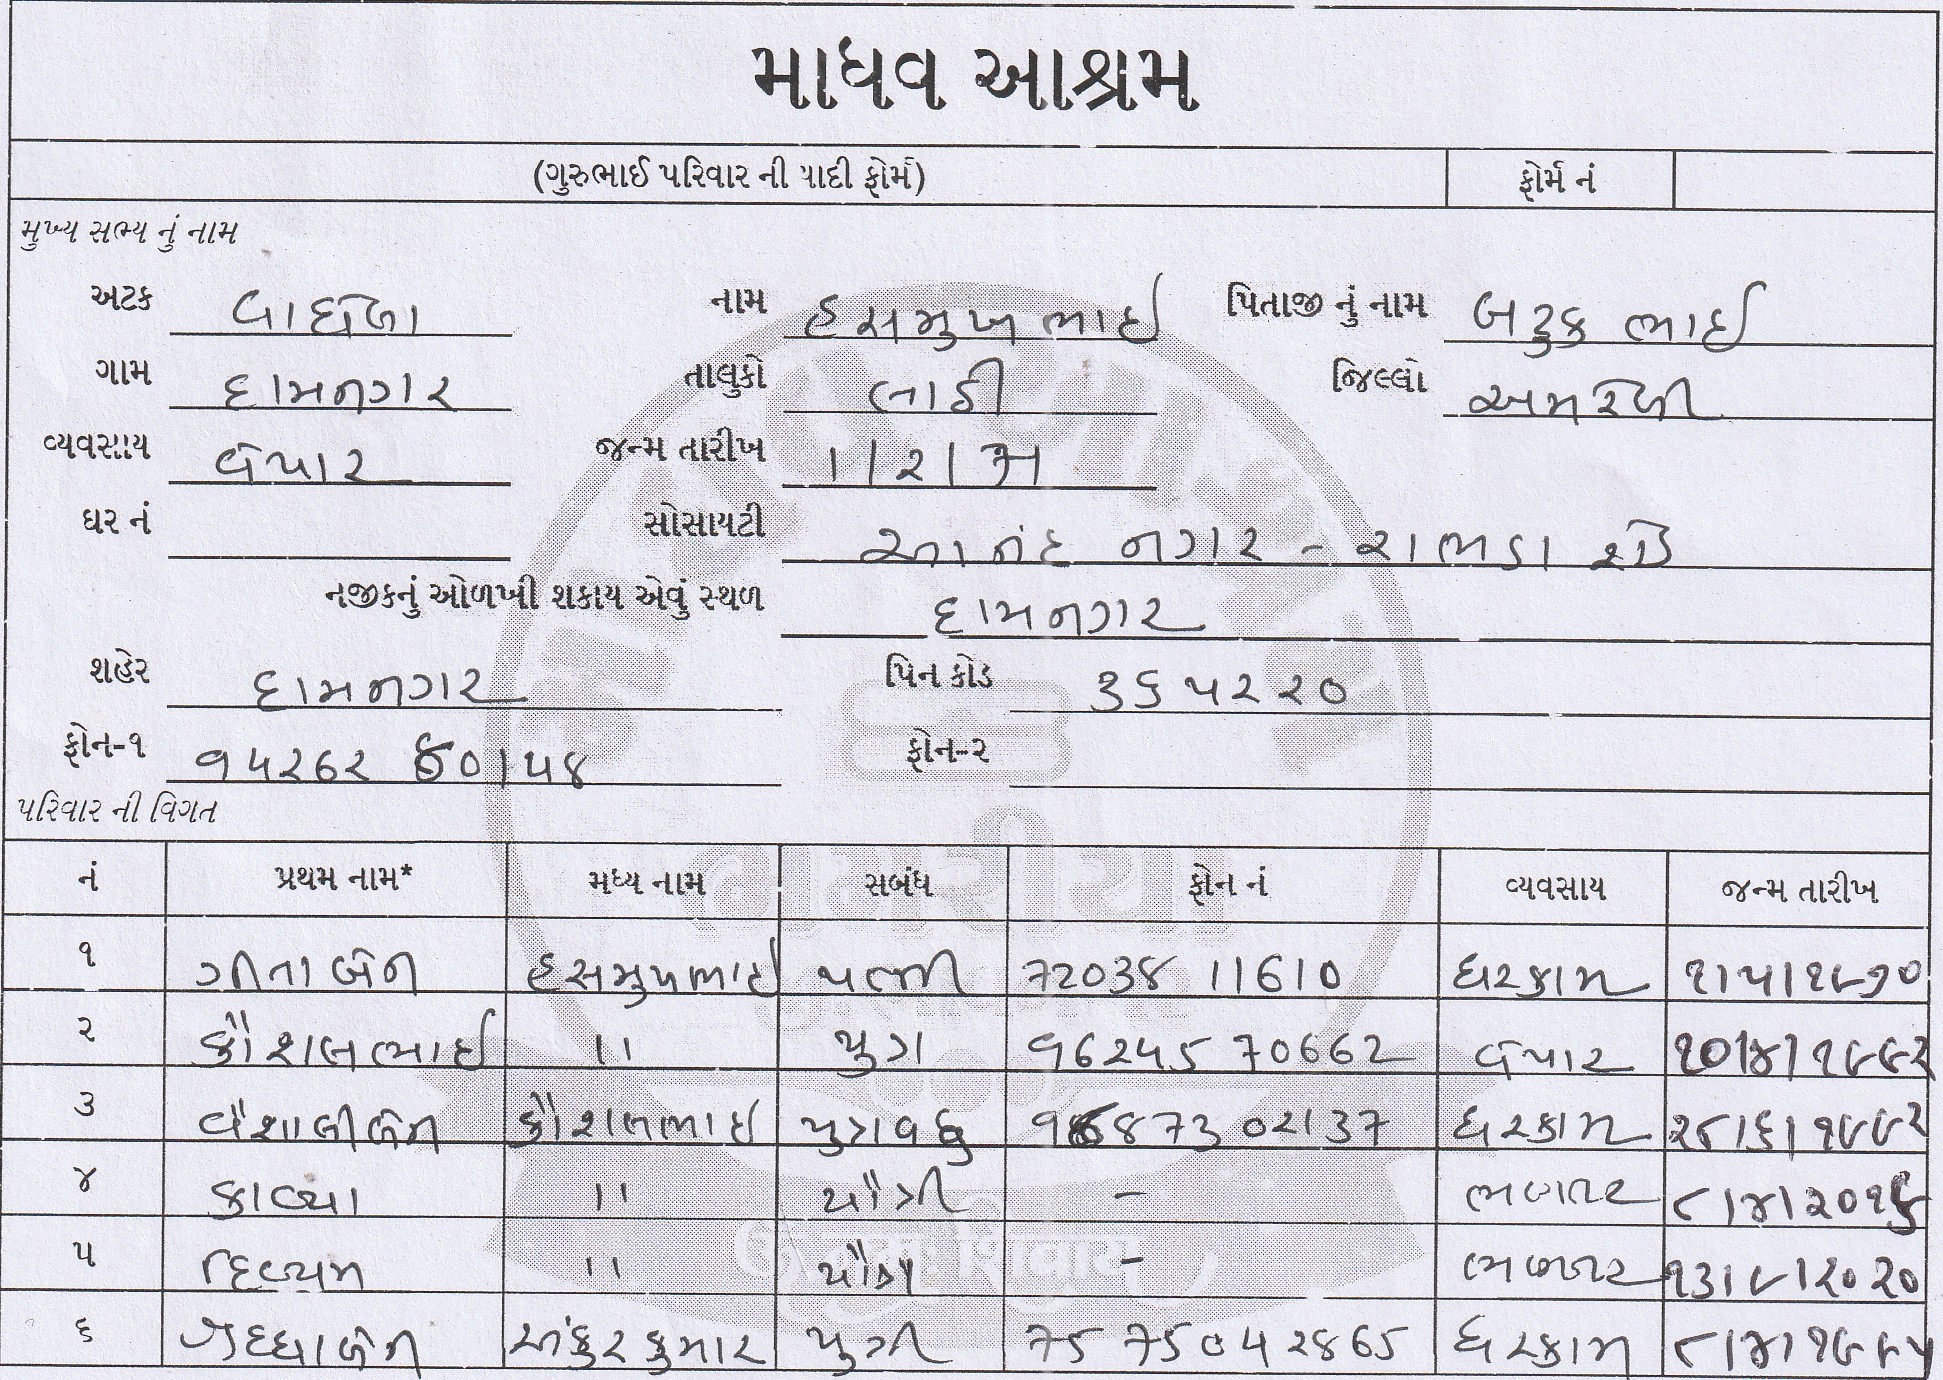 માધવ આશ્રમ
(ગુરુભાઈ પરિવાર ની યાદી ફોર્મ) ફોર્મ નં
મુખ્ય સભ્ય નું નામ
અટક વાઘેલા નામ હસમુખભાઈ પિતાજી નું નામ બટુકભાઈ
ગામ દામનગર તાલુકો લાઠી જિલ્લો અમરેલી
વ્યવસાય વેપાર જન્મ તારીખ
ઘર નં સોસાયટી આનંદ નગર - રાભડા રોડ
નજીકનું ઓળખી શકાય એવું સ્થળ દામનગર
શહેર દામનગર પિન કોડ ૩૬૫૨૨૦
ફોન-૧ ફોન-૨
પરિવાર ની વિગત
નં પ્રથમ નામ* મધ્ય નામ સબંધ ફોન નં વ્યવસાય જન્મ તારીખ
૧ ગીતાબેન હસમુખભાઈ પત્ની 72038 11610 ઘરકામ ૧/૫/૧૯૭૦
૨ કૌશલભાઈ " પુત્ર 96245 70662 વેપાર ૧૦/૪/૧૯૯૨
૩ વૈશાલીબેન કૌશલભાઈ પુત્રવધુ ઘરકામ ૨૯/૬/૧૯૯૨
૪ કાવ્યા " પૌત્રી - ભણતર
૫ દિવ્યમ " પૌત્ર - ભણતર ૧૩/૯/૨૦૨૦
૬ અંકુરકુમાર પુત્રી ઘરકામ ૮/૪/૧૯૯૫